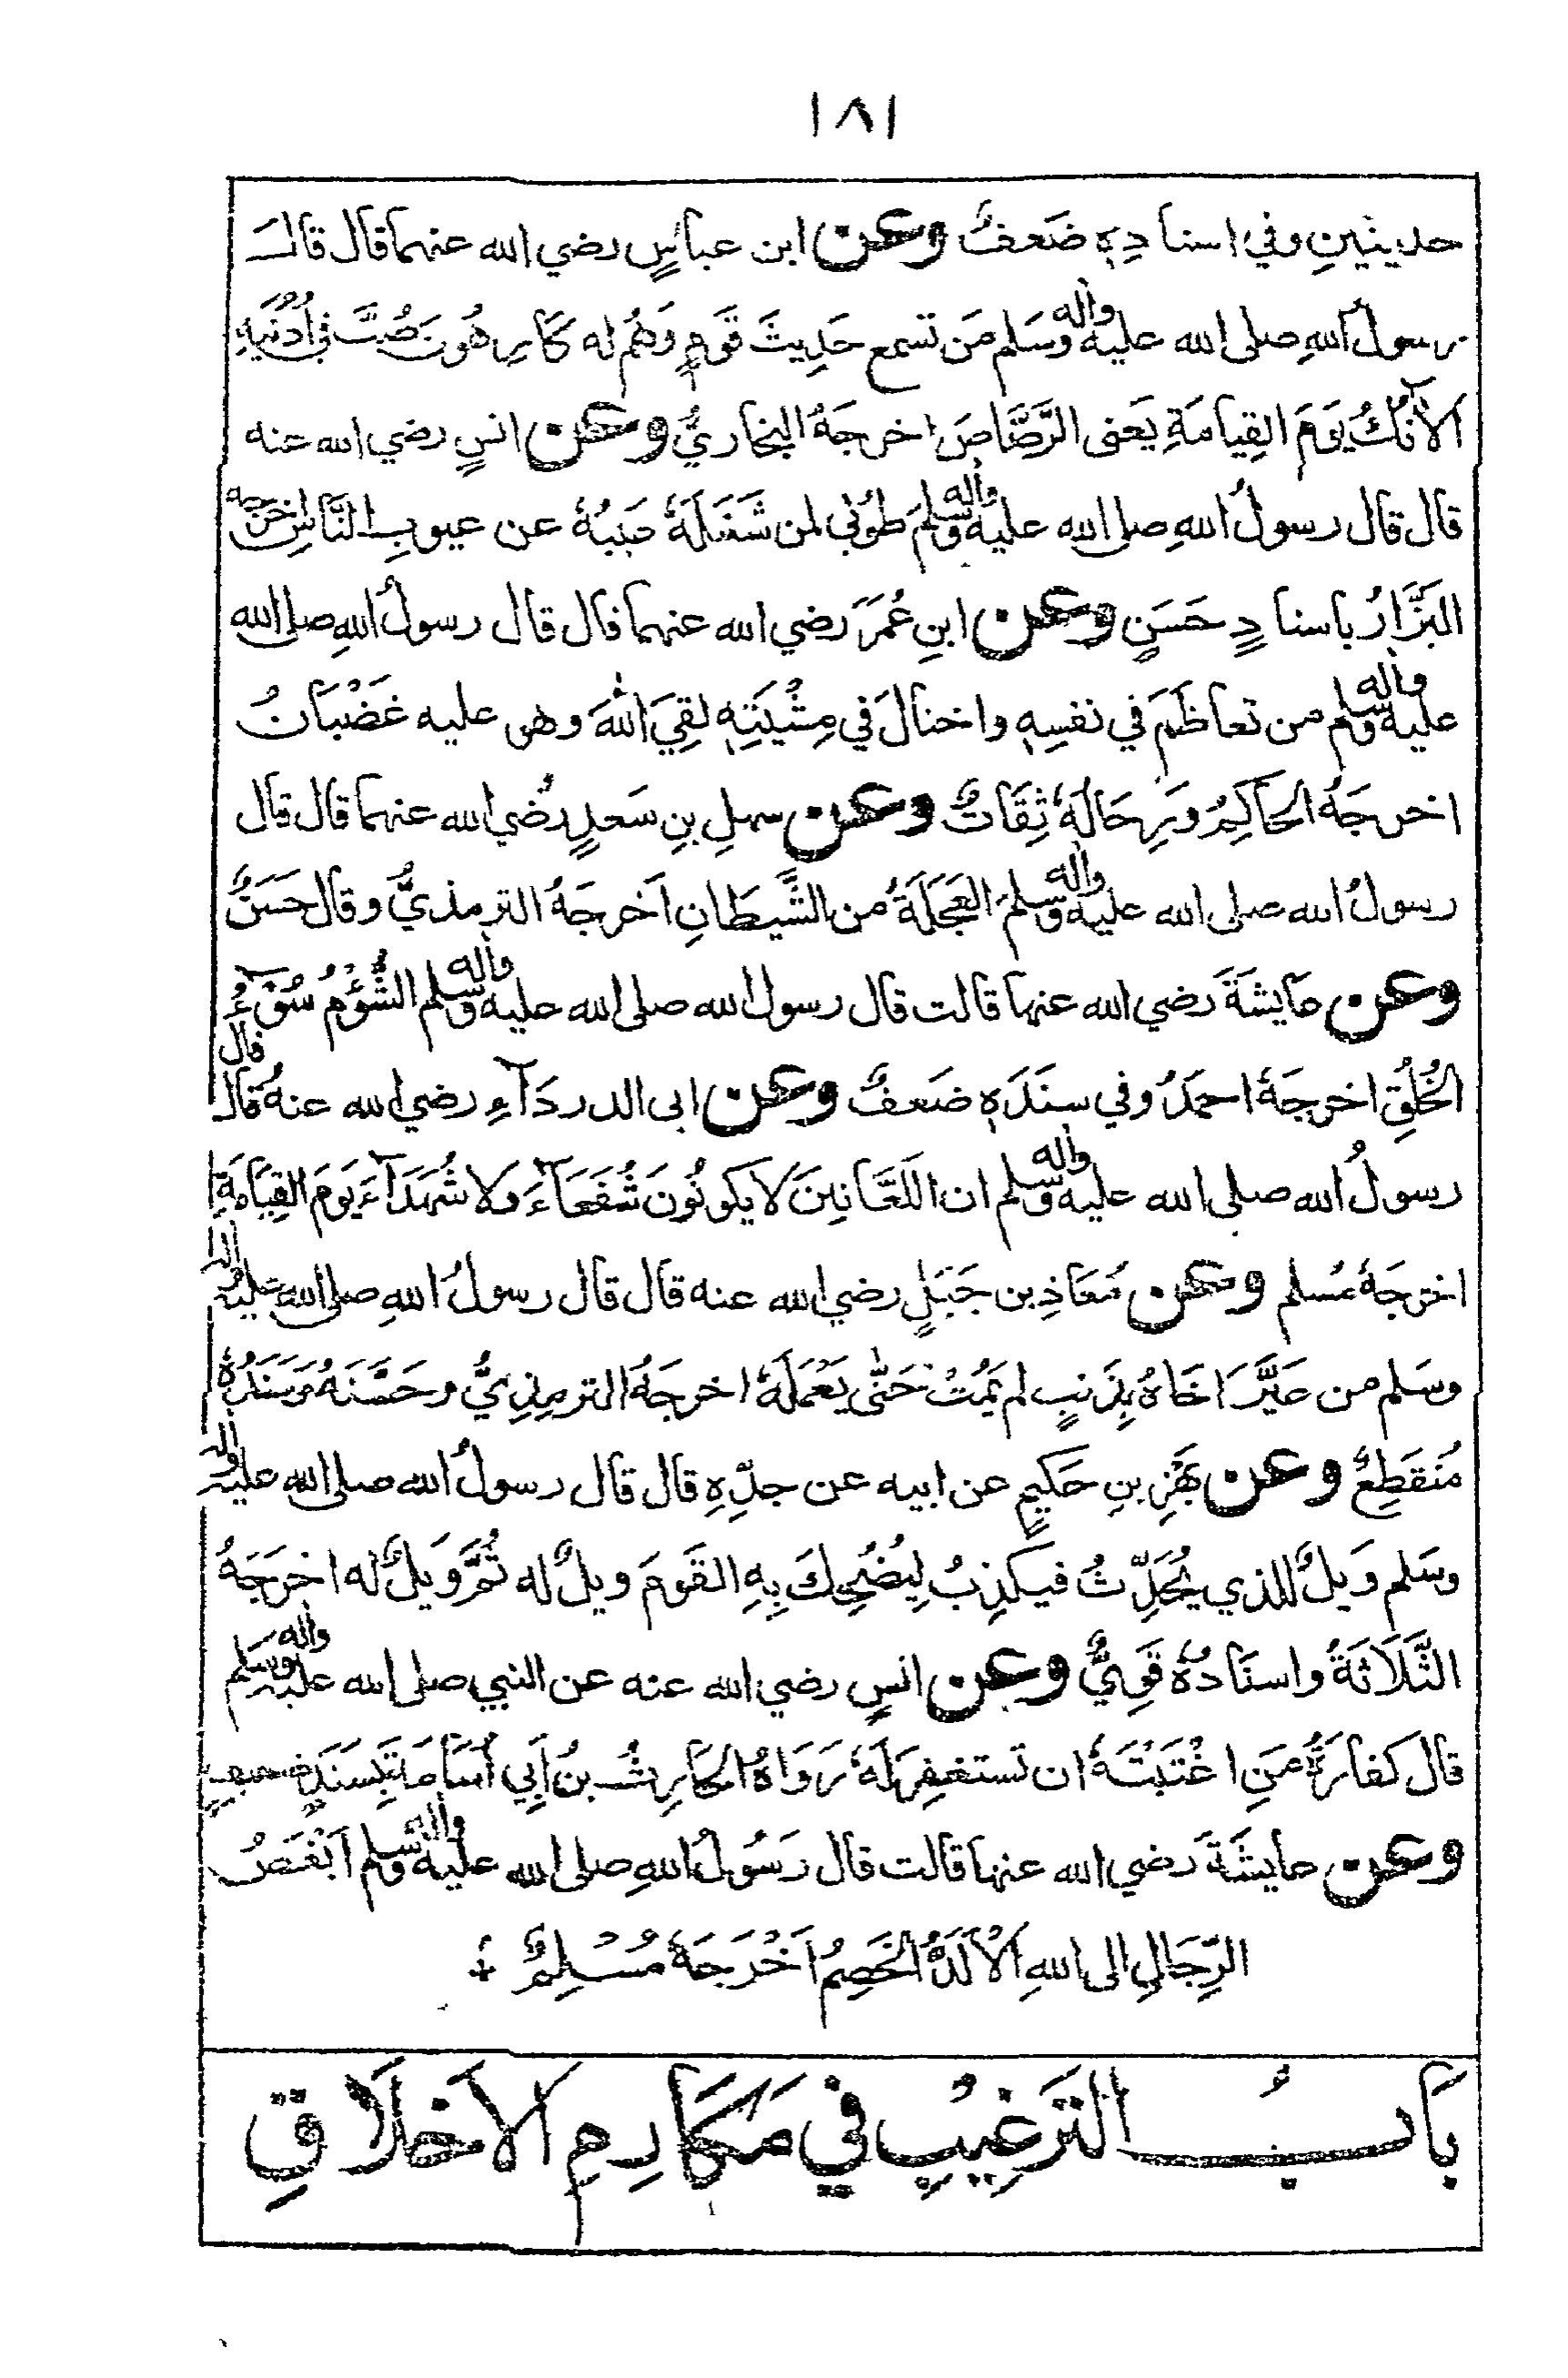 ١٨١
حديثينِ وفي اسنادِهٖ ضَعفٌ وعن ابن عباسٍ رضي الله عنهما قال قال
رسولُ اللهِ صلى الله عليه واٰله وسَلم مَن تسمع حَدِيثَ قَومٍ وَهُم له كَارِهُونَ صُبَّ في اُذُنَيهِ
الاٰنُكُ يَومَ القِيامَةِ يَعنى الرَّصَاصَ اخرجَهُ البُخاريُّ وعن انسٍ رضي الله عنه
قال قال رسولُ اللهِ صلى الله عليه واٰله وسلمَ طُوبٰى لمن شَغَلَهٗ عَيبُهٗ عن عيوبِ النَّاسِ اخرجه
البَزَّارُ باسنادٍ حَسَنٍ وعن ابنِ عُمَرَ رضي الله عنهما قال قال رسولُ اللهِ صلى الله
عليه واٰله وسلم من تعاظَمَ في نفسِهٖ واختالَ في مِشْيَتِهٖ لقِيَ اللهَ وهو عليه غَضْبَانُ
اخرجَهُ الحاكِمُ ورِجَالُهٗ ثِقَاتٌ وعن سهلِ بنِ سَعدٍ رَضي الله عنهما قال قال
رسولُ الله صلى الله عليه واٰله وسلمَ العَجَلَةُ من الشَّيطَانِ اَخرجَهُ الترمذيُّ وقال حَسَنٌ
وعن عايشَةَ رضي الله عنها قالت قال رسولُ الله صلى الله عليه واٰله وسلم الشُّؤْمُ سُوٓءُ
الخُلُقِ اخرجَهٗ احمَدُ وفي سنَدَهٖ ضَعفٌ وعن ابى الدردَآءِ رضي الله عنهُ قال قال
رسولُ الله صلى الله عليه واٰله وسلم ان اللَّعَّانِينَ لا يكونُونَ شُفَعَآءَ ولا شُهَدَآءَ يَومَ القِيَامَةِ
اخرجَهٗ مُسلم وعن مُعَاذِ بن جَبَلٍ رضي الله عنه قال قال رسولُ اللهِ صلى الله عليه واٰله
وسَلم من عَيَّرَ اخَاهُ بِذَنبٍ لم يَمُتْ حَتّٰى يَعْمَلَهٗ اخرجَهُ الترمِذِيُّ وحَسَّنَهُ وسَنَدُهٗ
مُنقَطِعٌ وعن بَهْزِ بنِ حَكيمٍ عن ابيه عن جدِّهِ قال قال رسولُ الله صلى الله عليه واٰله
وسَلم وَيلٌ للذي يُحَدِّثُ فيكذِبُ لِيُضْحِكَ بِهِ القَومَ ويلٌ له ثُمَّ وَيلٌ له اخرَجَهُ
الثَّلَاثَةُ واسنَادُهٗ قَوِيٌّ وعن انسٍ رضي الله عنه عن النبي صلى الله عليه واٰله وسَلم
قال كفارَةُ مَنِ اغْتَبْتَهٗ ان تستغفِرَ لَهٗ رَوَاهُ الحَارِثُ بنُ اَبِي اُسَامَةَ بِسَنَدٍ ضعيفٍ
وعن عايشَةَ رَضي الله عنها قالت قال رَسُولُ اللهِ صلى الله عليه واٰله وسلم اَبْغَضُ
الرِّجَالِ الى اللهِ الْاَلَدُّ الخَصِمُ اَخْرَجَهٗ مُسْلِمٌ
بابُ الترغيبِ في مَكَارِمِ الاَخلَاقِ